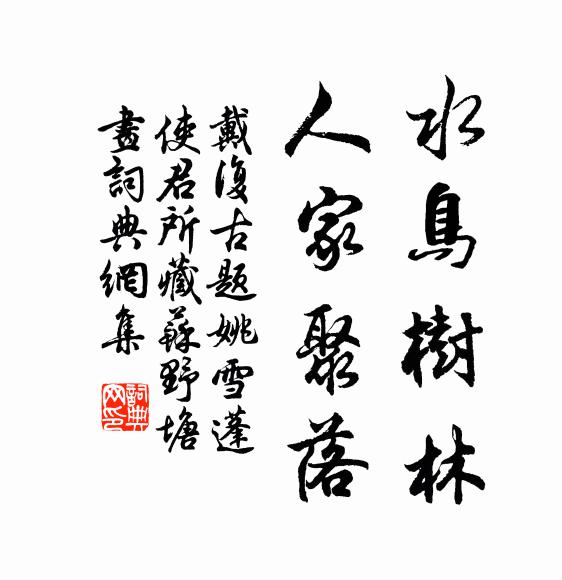 水鳥樹林
人家聚落
戴復古題姚雪蓬
使君所藏蘇野塘
畫詞典網集
詞典
网印